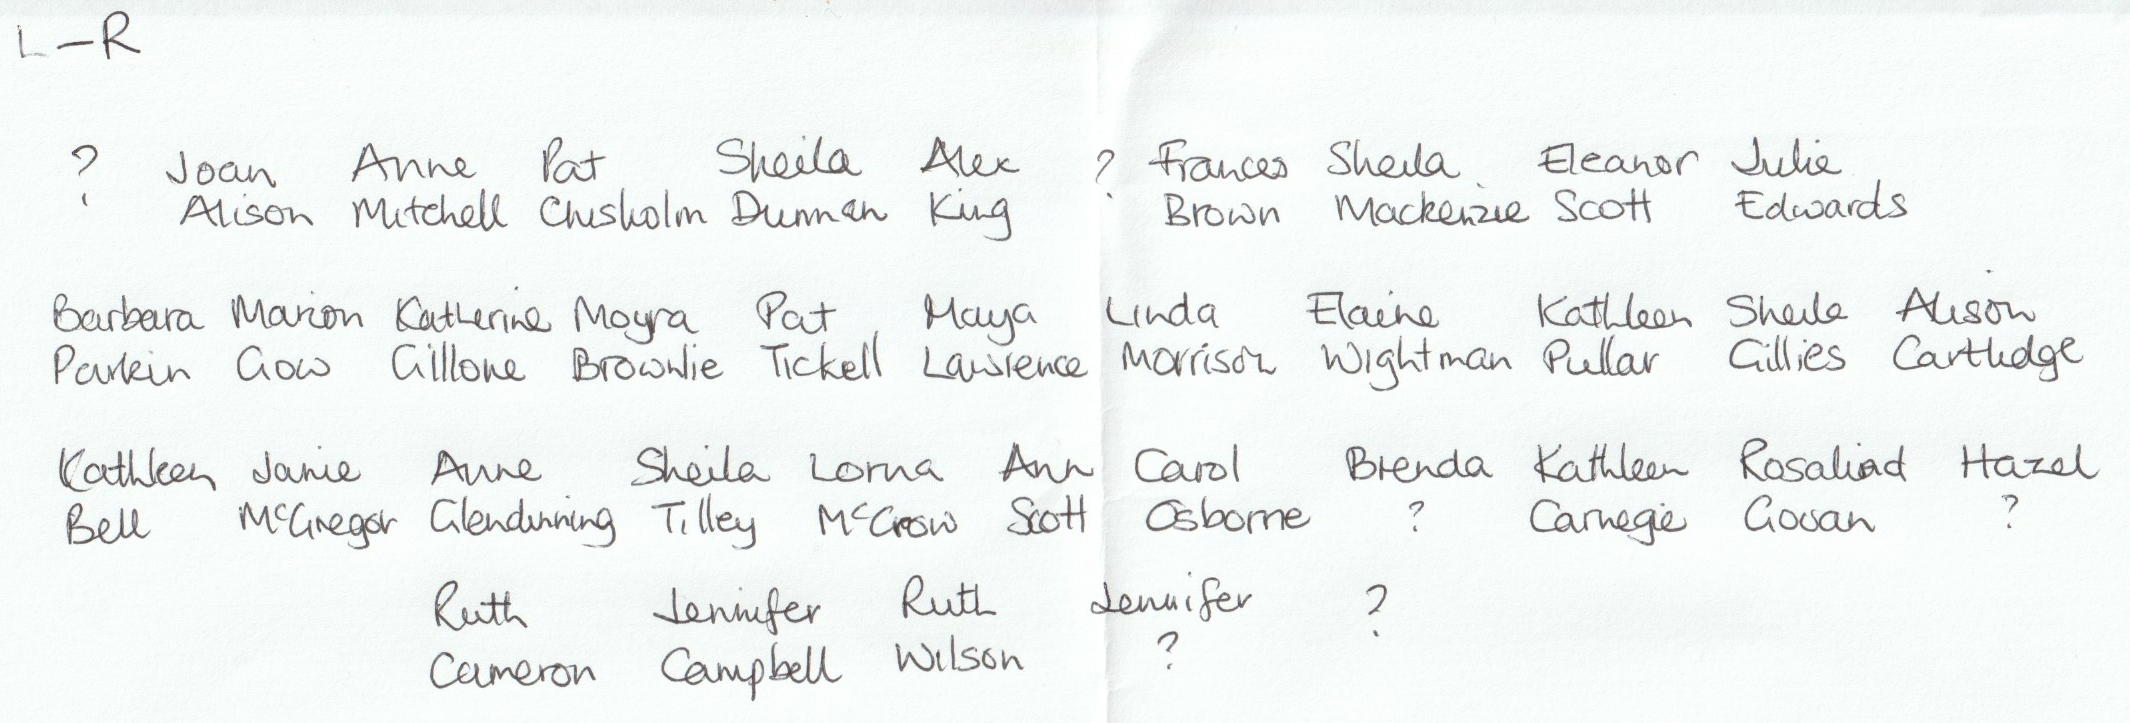 L-R
? Joan Anne Pat Sheila Alex ? Frances Sheila Eleanor Julie
Alison Mitchell Chisholm Dunman King Brown Mackenzie Scott Edwards
Barbara Marion Katherine Moyra Pat Maya Linda Elaine Kathleen Sheila Alison
Parkin Gow Gillone Brownlie Tickell Lawrence Morrison Wightman Pullar Gillies Cartledge
Kathleen Janie Anne Sheila Lorna Ann Carol Brenda Kathleen Rosalind Hazel
Bell McGregor Glendinning Tilley McCrow Scott Osborne ? Carnegie Govan ?
Ruth Jennifer Ruth Jennifer ?
Cameron Campbell Wilson ?